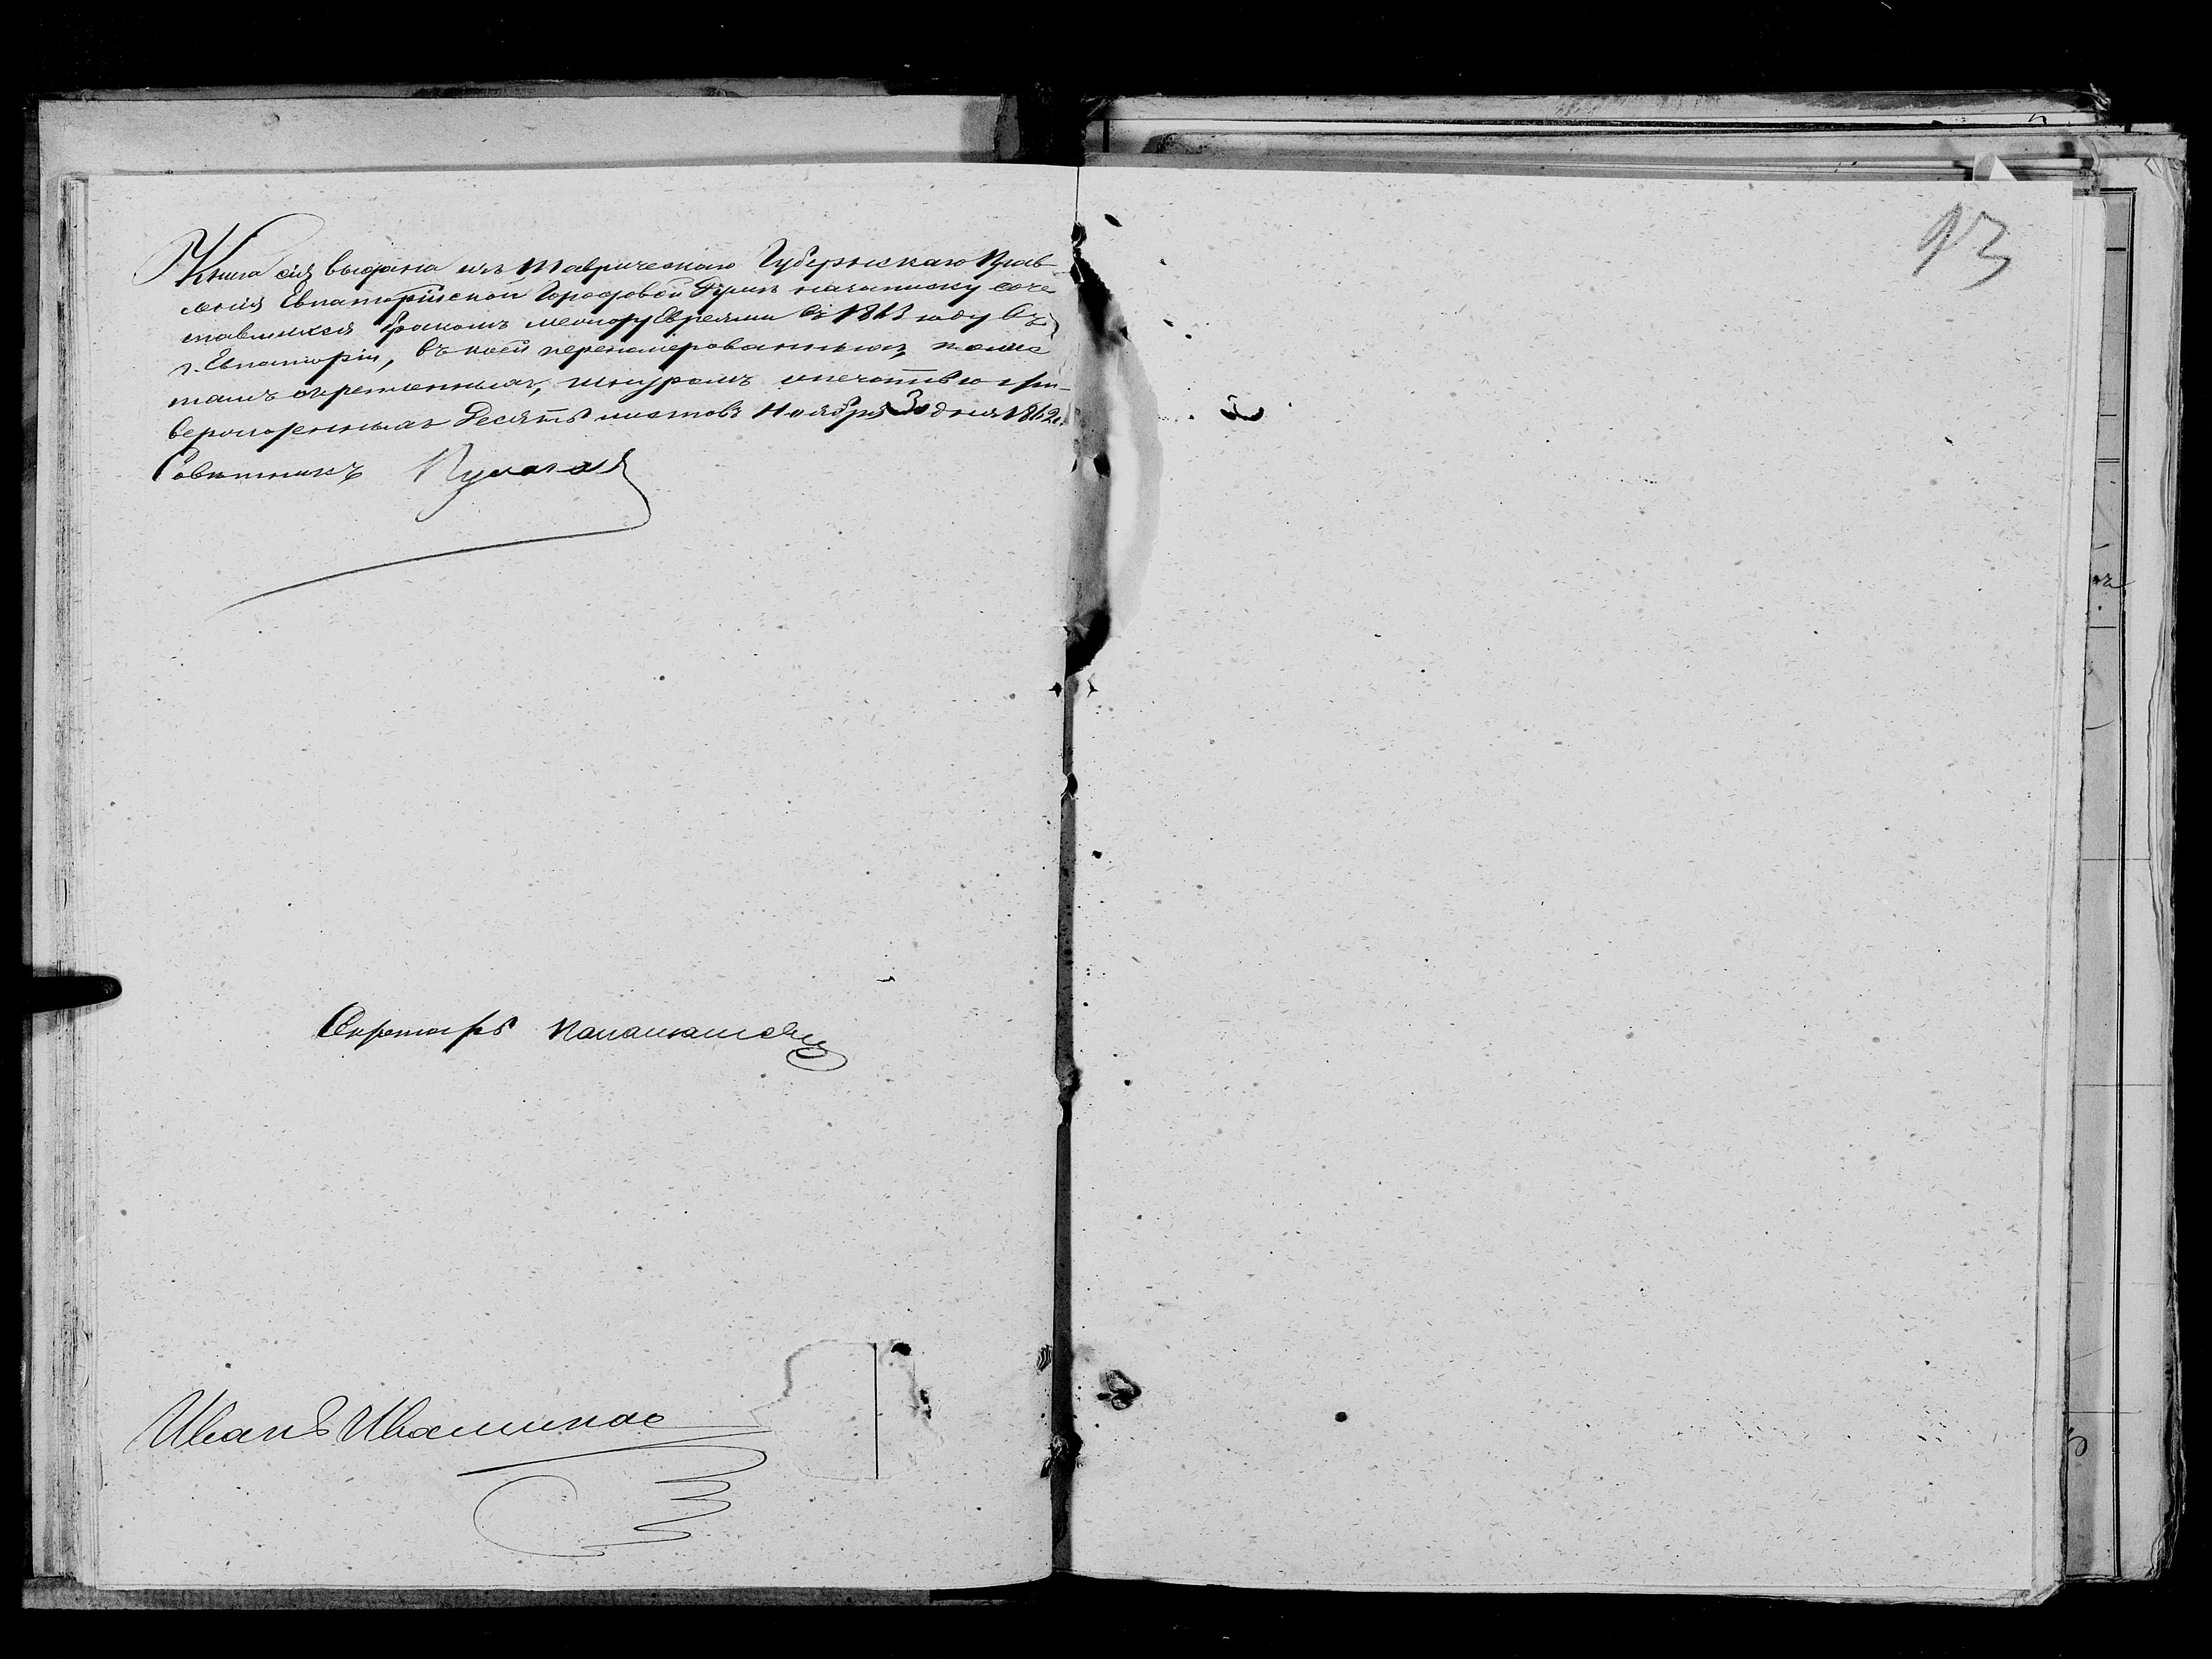 93
Книга сія выдана изъ Таврическаго Губернскаго Прав-
ленія Евпаторійской Городовой Думѣ на записку соче
тавшихся бракомъ между Евреями въ 1863 году въ
г. Евпаторіи, въ коей перенумерованныхъ, по лис
тамъ скрепленныхъ, шнуромъ и печатью при-
верженныхъ Десять листовъ Ноября 30 дня 1862 г.
Совѣтникъ
Секретарь
Иванъ